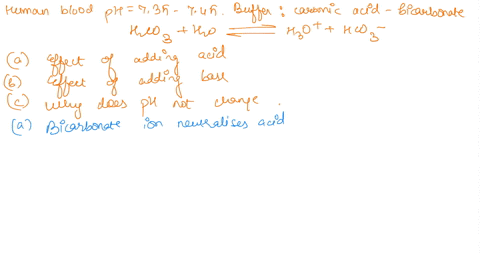 Human blood pH = 7.35 - 7.45. Buffer : caronic acid - bicarbonate
H₂CO₃ + H₂O ⇌ H₃O⁺ + HCO₃⁻
(a) Effect of adding acid
(b) Effect of adding base
(c) Why does pH not change.
(a) Bicarbonate ion neutralises acid